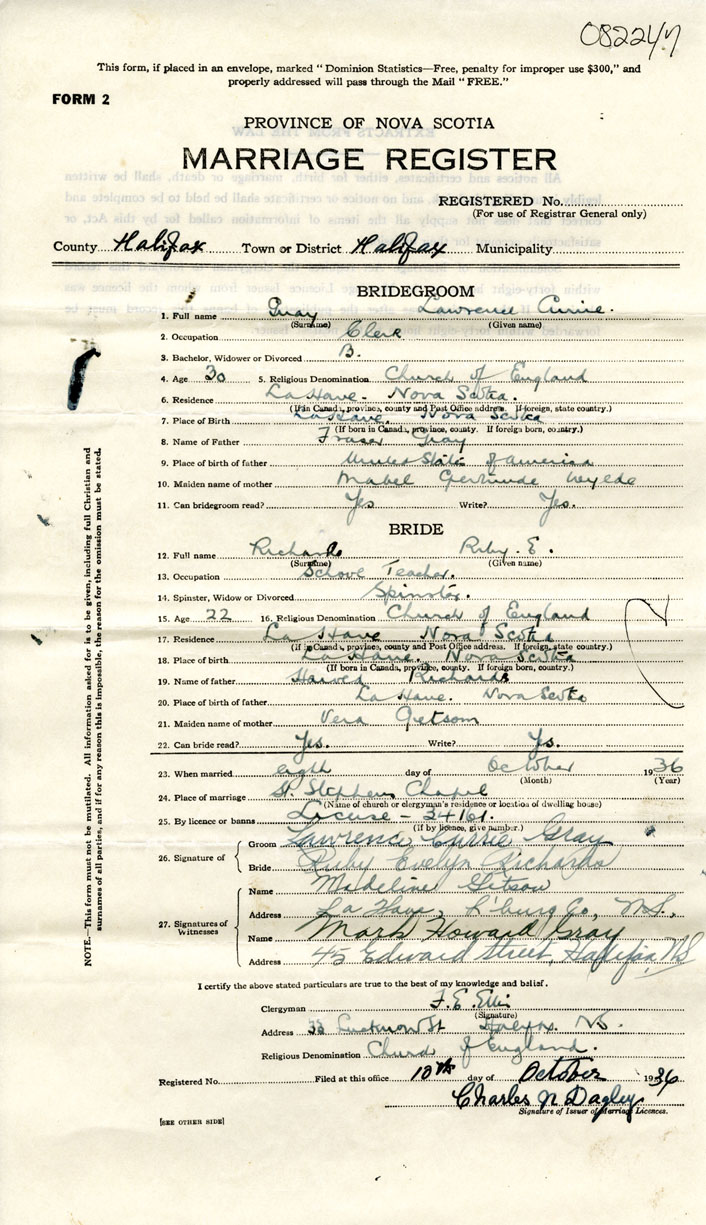 082247
This form, if placed in an envelope, marked "Dominion Statistics—Free, penalty for improper use $300," and
properly addressed will pass through the Mail "FREE."
FORM 2
PROVINCE OF NOVA SCOTIA
MARRIAGE REGISTER
REGISTERED No.
(For use of Registrar General only)
County Halifax Town or District Halifax Municipality
BRIDEGROOM
1. Full name Gray Lawrence Currie
(Surname) (Given name)
2. Occupation Clerk
3. Bachelor, Widower or Divorced B.
4. Age 30 5. Religious Denomination Church of England
6. Residence LaHave. Nova Scotia.
(If in Canada, province, county and Post Office address. If foreign, state country.)
7. Place of Birth LaHave, Nova Scotia
(If born in Canada, province, county. If foreign born, country.)
8. Name of Father Fraser Gray
9. Place of birth of father United States of America
10. Maiden name of mother Mabel Gertrude
11. Can bridegroom read? Yes Write? Yes.
BRIDE
12. Full name Richards Ruby. E.
(Surname) (Given name)
13. Occupation School Teacher.
14. Spinster, Widow or Divorced Spinster.
15. Age 22 16. Religious Denomination Church of England
17. Residence La Have Nova Scotia
(If in Canada, province, county and Post Office address. If foreign, state country.)
18. Place of birth La Have. Nova Scotia
(If born in Canada, province, county. If foreign born, country.)
19. Name of father Richards
20. Place of birth of father La Have. Nova Scotia
21. Maiden name of mother Vera Getsom
22. Can bride read? Yes. Write? Yes.
23. When married eighth day of October 1936
(Month) (Year)
24. Place of marriage St. Stephens Chapel
(Name of church or clergyman's residence or location of dwelling house)
25. By licence or banns License - 24161.
(If by licence, give number.)
26. Signature of Groom Lawrence Currie Gray
Bride Ruby Evelyn Richards
27. Signatures of Witnesses
Name Madeline Getson
Address La Have, L'burg Co, N.S.,
Name Mark Howard Gray
Address 45 Edward Street, Halifax, NS
I certify the above stated particulars are true to the best of my knowledge and belief.
Clergyman F. E. Ellis
(Signature)
Address St Halifax. NS.
Religious Denomination Church of England.
Registered No. Filed at this office 10th day of October 1936
Charles N Dagley
Signature of Issuer of Marriage Licences.
[SEE OTHER SIDE]
NOTE.—This form must not be mutilated. All information asked for is to be given, including full Christian and
surnames of all parties, and if for any reason this is impossible, the reason for the omission must be stated.